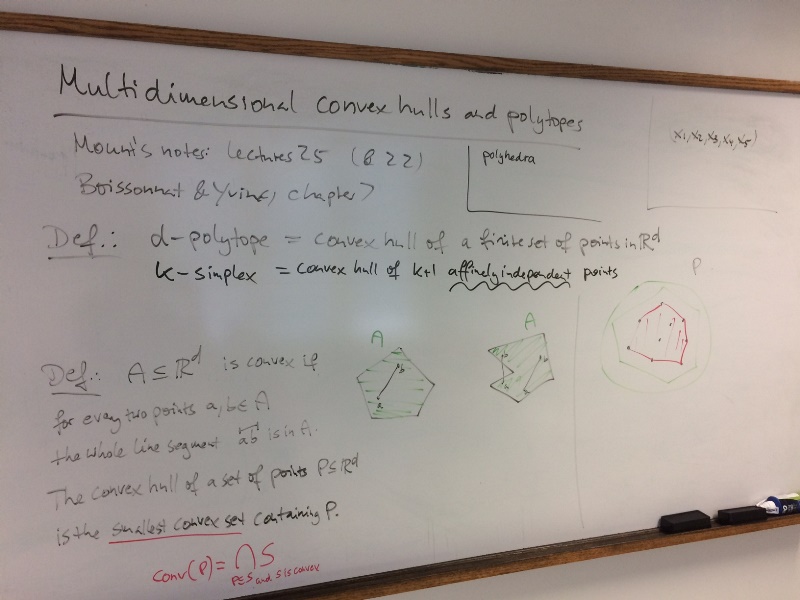 Multidimensional convex hulls and polytopes
Mount's notes: lectures 25 (& 22)
Boissonnat & Yvinec, chapter 7
polyhedra
x1, x2, x3, x4, x5)
Def.: d-polytope = convex hull of a finite set of points in ℝ^d
k-simplex = convex hull of k+1 affinely independent points
P
A
A
b
a
b
a
Def.: A ⊆ ℝ^d is convex if
for every two points a, b ∈ A
the whole line segment ab is in A.
The convex hull of a set of points P ⊆ ℝ^d
is the smallest convex set containing P.
conv(P) = ∩ S
P⊆S and S is convex